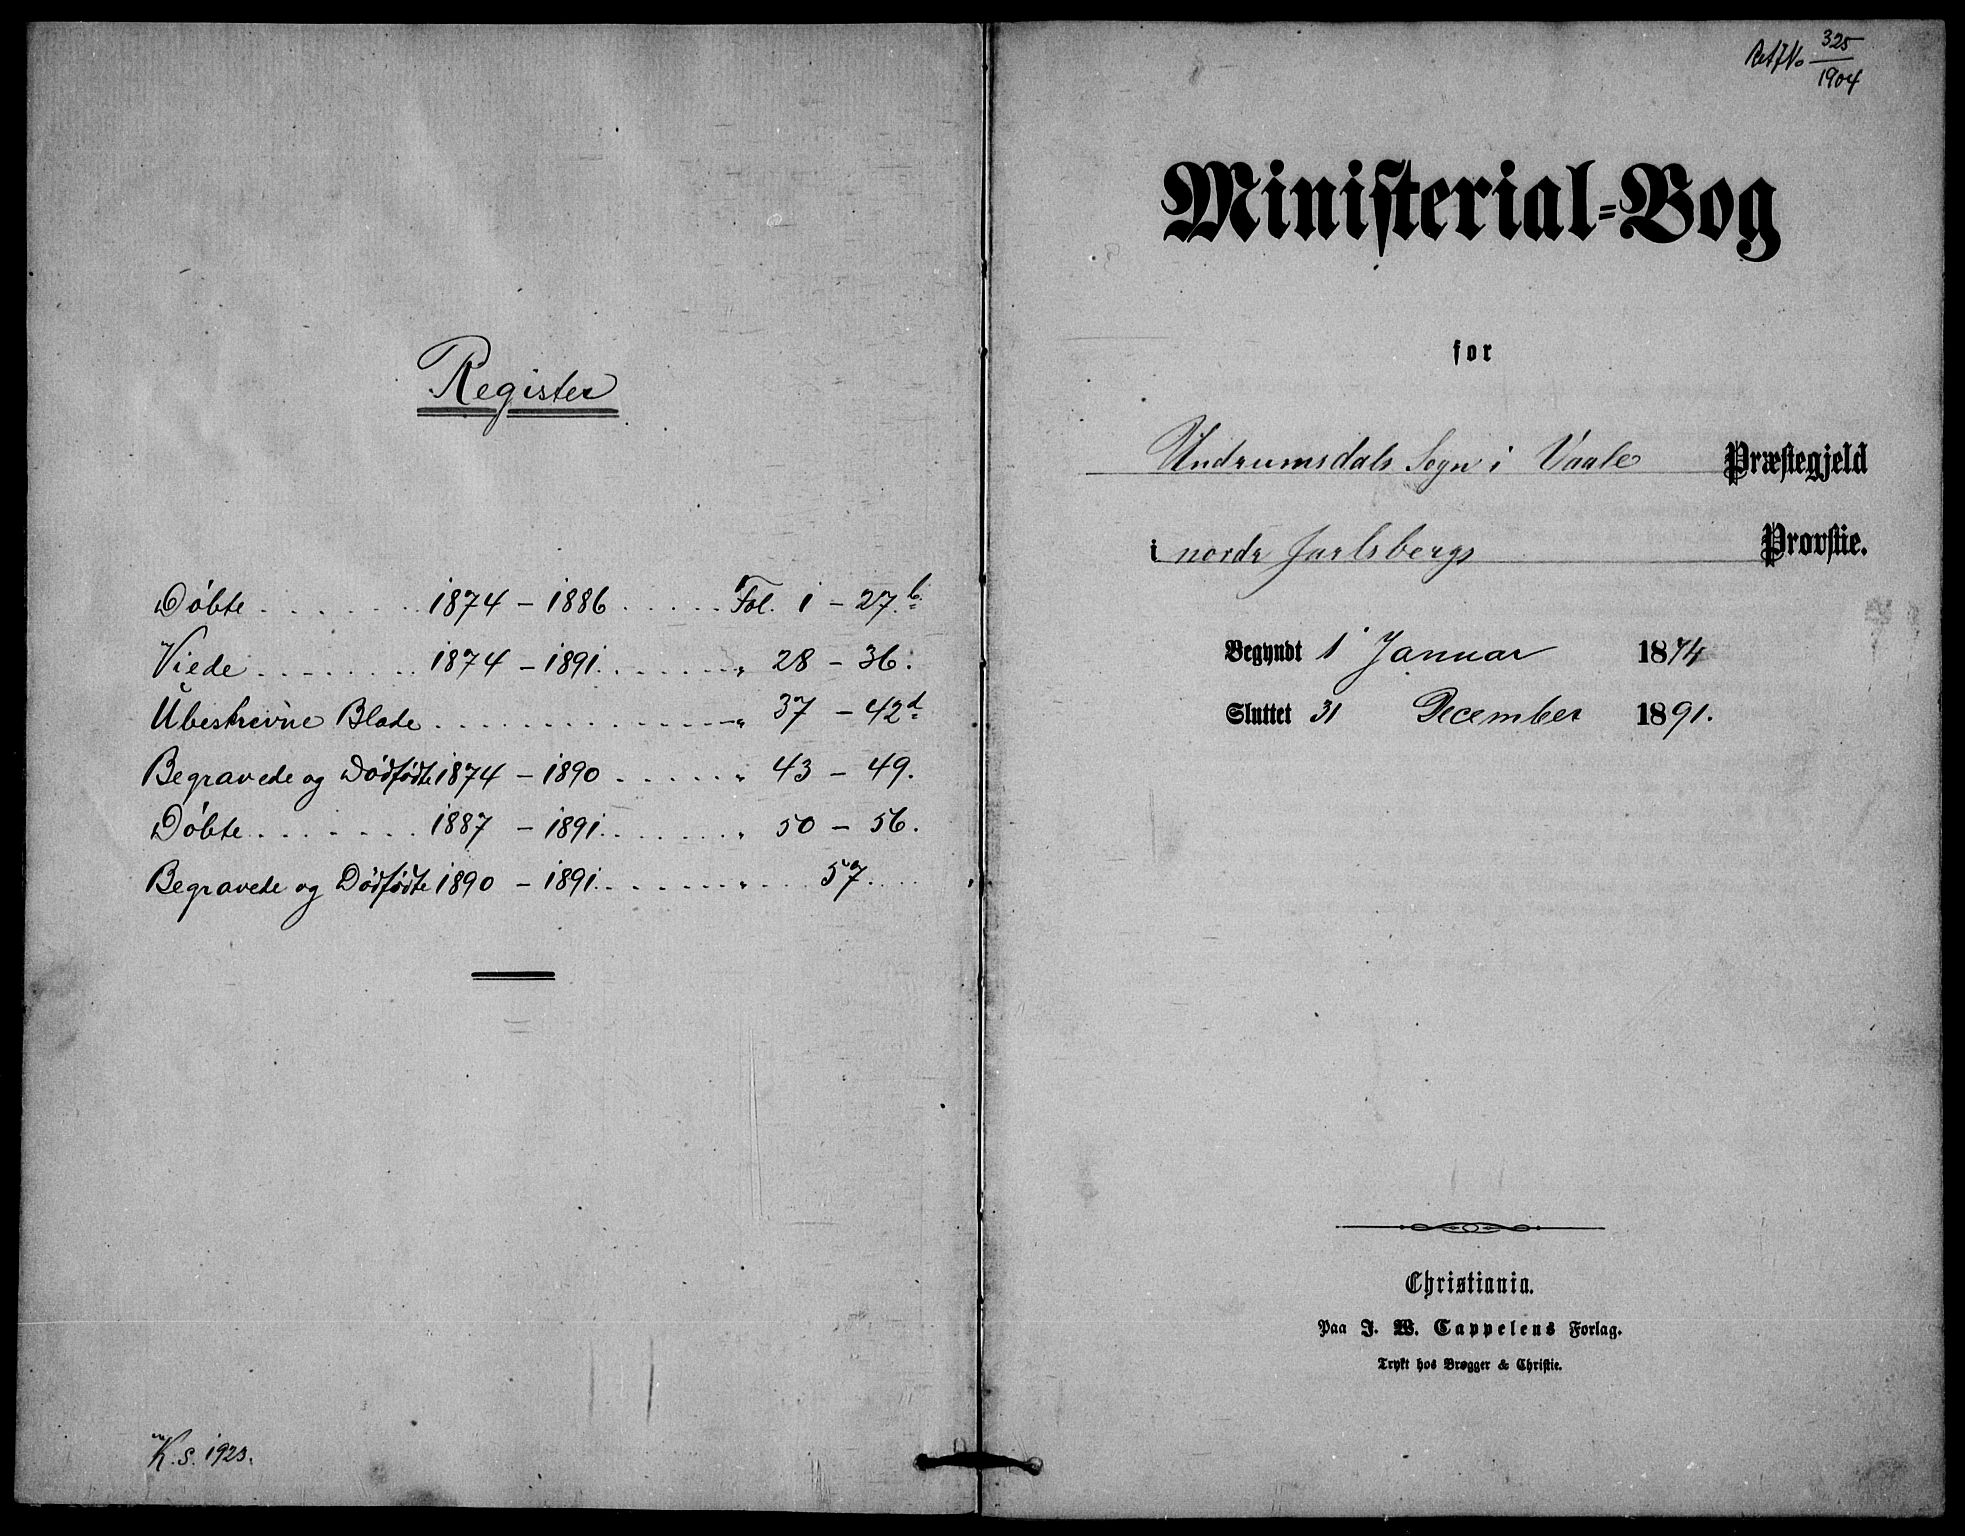 Register
Döbte . . . . . . . 1874 – 1886 . . . . . Fol. 1 – 27.b
Viede . . . . . . . 1874 – 1891. . . . . . . " 28 – 36.
Ubeskrevne Blade . . . . . . . . . . . . . . " 37 – 42d
Begravede og Dödfödte 1874 – 1890 . . . . . " 43 – 49.
Döbte . . . . . . . 1887 – 1891. . . . . . . " 50 – 56.
Begravede og Dödfödte 1890 – 1891. . . . . . " . . . 57. . .
K.S. 1923.
325
1904
Ministerial-Bog
for
Undrumsdals Sogn i Vaale Præstegjeld
i nordr Jarlsbergs Provstie.
Begyndt 1 Januar 1874
Sluttet 31 December 1891.
Christiania.
Paa J. W. Cappelens Forlag.
Trykt hos Brøgger & Christie.